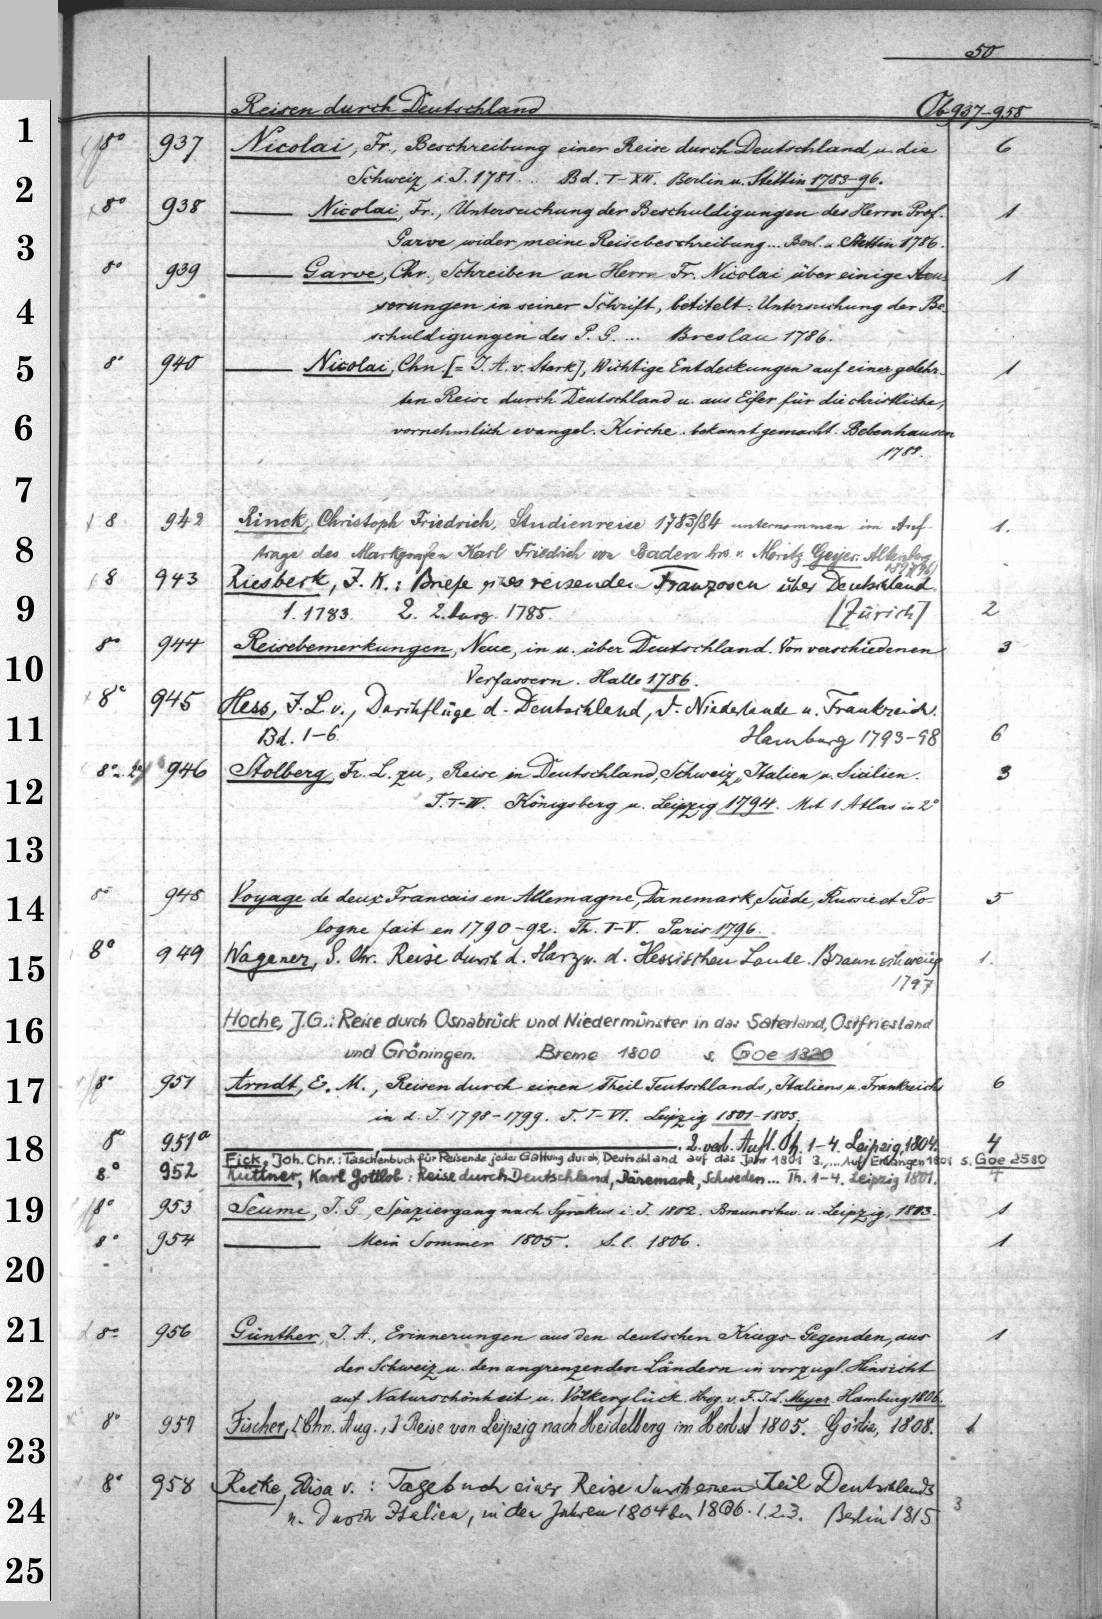 50
Reisen durch Deutschland Ob 937-958
1
8° 937 Nicolai, Fr., Beschreibung einer Reise durch Deutschland u. die 6
2
Schweiz i. J. 1781. . Bd. I-XII. Berlin u. Stettin 1783-96.
8° 938 — Nicolai, Fr., Untersuchung der Beschuldigungen des Herrn Prof. 1
3
Garve wider meine Reisebeschreibung... Berl. u. Stettin 1786.
8° 939 — Garve, Chr., Schreiben an Herrn Fr. Nicolai über einige Aeus- 1
4
serungen in seiner Schrift, betitelt: Untersuchung der Be-
schuldigungen des P. G. ... Breslau 1786.
5
8° 940 — Nicolai, Chn. [= J. A. v. Stark], Wichtige Entdeckungen auf einer gelehr- 1
ten Reise durch Deutschland u. aus Eifer für die christliche,
6
vornehmlich evangel. Kirche. bekannt gemacht. Bebenhausen
1788.
7
8 942 Rinck, Christoph Friedrich, Studienreise 1783/84 unternommen im Auf- 1.
8
trage des Markgrafen Karl Friedrich von Baden hrs. v. Moritz Geyer. Altenburg
8 943 Riesberk, J. K.: Briefe reisenden Franzosen über Deutschland.
9
1. 1783. 2. 1785. [Zürich] 2
8° 944 Reisebemerkungen, Neue, in u. über Deutschland. Von verschiedenen 3
10
Verfassern. Halle 1786.
8° 945 Hess, J. L v., Durchflüge d. Deutschland, d. Niederlande u. Frankreich.
11
Bd. 1-6. Hamburg 1793-98 6
8° u. 2° 946 Stolberg, Fr. L. zu, Reise in Deutschland, Schweiz, Italien u. Sicilien. 3
12
T. I-IV. Königsberg u. Leipzig 1794. Mit 1 Atlas in 2°
13
14
8° 948 Voyage de deux Francais en Allemagne, Danemark, Suède, Russie et Po- 5
logne fait en 1790-92. Th. I-V. Paris 1796.
15
8° 949 Wagener, S. Chr. Reise durch d. Harz u. d. Hessischen Lande. Braunschweig 1.
1797
16
Hoche, J.G.: Reise durch Osnabrück und Niedermünster in das Saterland, Ostfriesland
und Gröningen. Breme 1800 s. Goe 1820
17
8° 951 Arndt, E. M., Reisen durch einen Theil Teutschlands, Italiens u. Frankreichs 6
in d. J. 1798-1799. T. I-VI. Leipzig 1801-1803.
18
8° 951a — . 2. verb. Aufl. Th. 1-4. Leipzig, 1804. 4
Fick, Joh. Chr.: Taschenbuch für Reisende jeder Gattung durch Deutschland auf das Jahr 1801 3.,... Aufl Erlangen 1801 s. Goe 2580
8° 952 Küttner, Karl Gottlob: Reise durch Deutschland, Dänemark, Schweden... Th. 1-4. Leipzig 1801. 4
19
8° 953 Seume, J. G., Spaziergang nach Syrakus i. J. 1802. Braunschw. u. Leipzig, 1803. 1
8° 954 — Mein Sommer 1805. S.l. 1806. 1
20
21
8° 956 Günther, J. A., Erinnerungen aus den deutschen Kriegs-Gegenden, aus 1
der Schweiz u. den angrenzenden Ländern in vorzugl. Hinsicht
22
auf Naturschönheit u. Völkerglück. Hrsg. v. F. J. L. Meyer. Hamburg 1806.
8° 957 Fischer, [Chn. Aug.,] Reise von Leipzig nach Heidelberg im Herbst 1805. Görlitz, 1808. 1
23
8° 958 Recke, Elisa v. : Tagebuch einer Reise durch einen Theil Deutschlands
24
u. durch Italien, in den Jahren 1804 bis 1806. 1.2.3. Berlin 1815 3
25